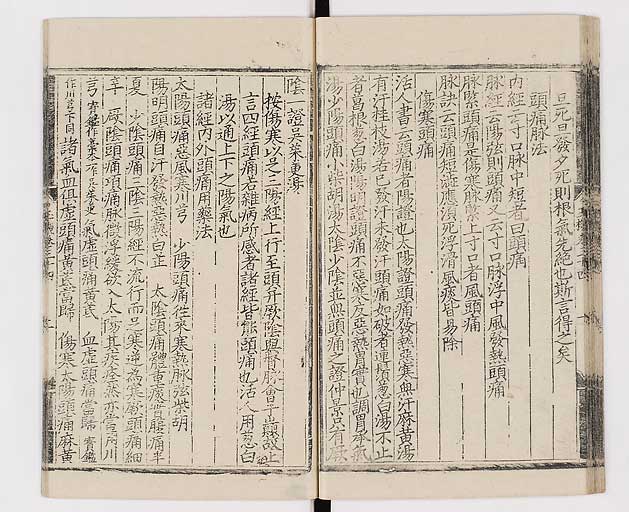 旦死旦發夕死則根氣先絶也斯言得之矣
頭痛脉法
内經云寸口脉中短者曰頭痛
脉經云陽弦則頭痛又云寸口脉浮中風發熱頭痛
脉緊頭痛是傷寒脉緊上寸口者風頭痛
脉訣云頭痛短澁應須死浮滑風痰皆易除
傷寒頭痛
活人書云頭痛者陽證也太陽證頭痛發熱惡寒無汗麻黄湯
有汗桂枝湯若已發汗未發汗頭痛如破者連鬚葱白湯不止
者葛根葱白湯陽明證頭痛不惡寒反惡熱胃實也調胃承氣
湯少陽頭痛小柴胡湯太陰少陰並無頭痛之證仲景只有厥
陰一證吳茱萸湯
按傷寒以足三陽經上行至頭并厥陰與督脉會于巓故上
言四經頭痛若雜病所感者諸經皆能頭痛也活人用葱白
湯以通上下之陽氣也
諸經内外頭痛用藥法
太陽頭痛惡風寒川芎 少陽頭痛徃來寒熱脉弦柴胡
陽明頭痛自汗發熱惡熱白芷 太陰頭痛體重痰實腹痛半
夏 少陰頭痛三陰三陽經不流行而足寒逆為寒厥頭痛細
辛 厥陰頭痛項痛脉微浮緩欲入太陽其疾痊然亦當用川
芎
諸氣血俱虛頭痛黄芪當歸 傷寒太陽頭痛麻黄